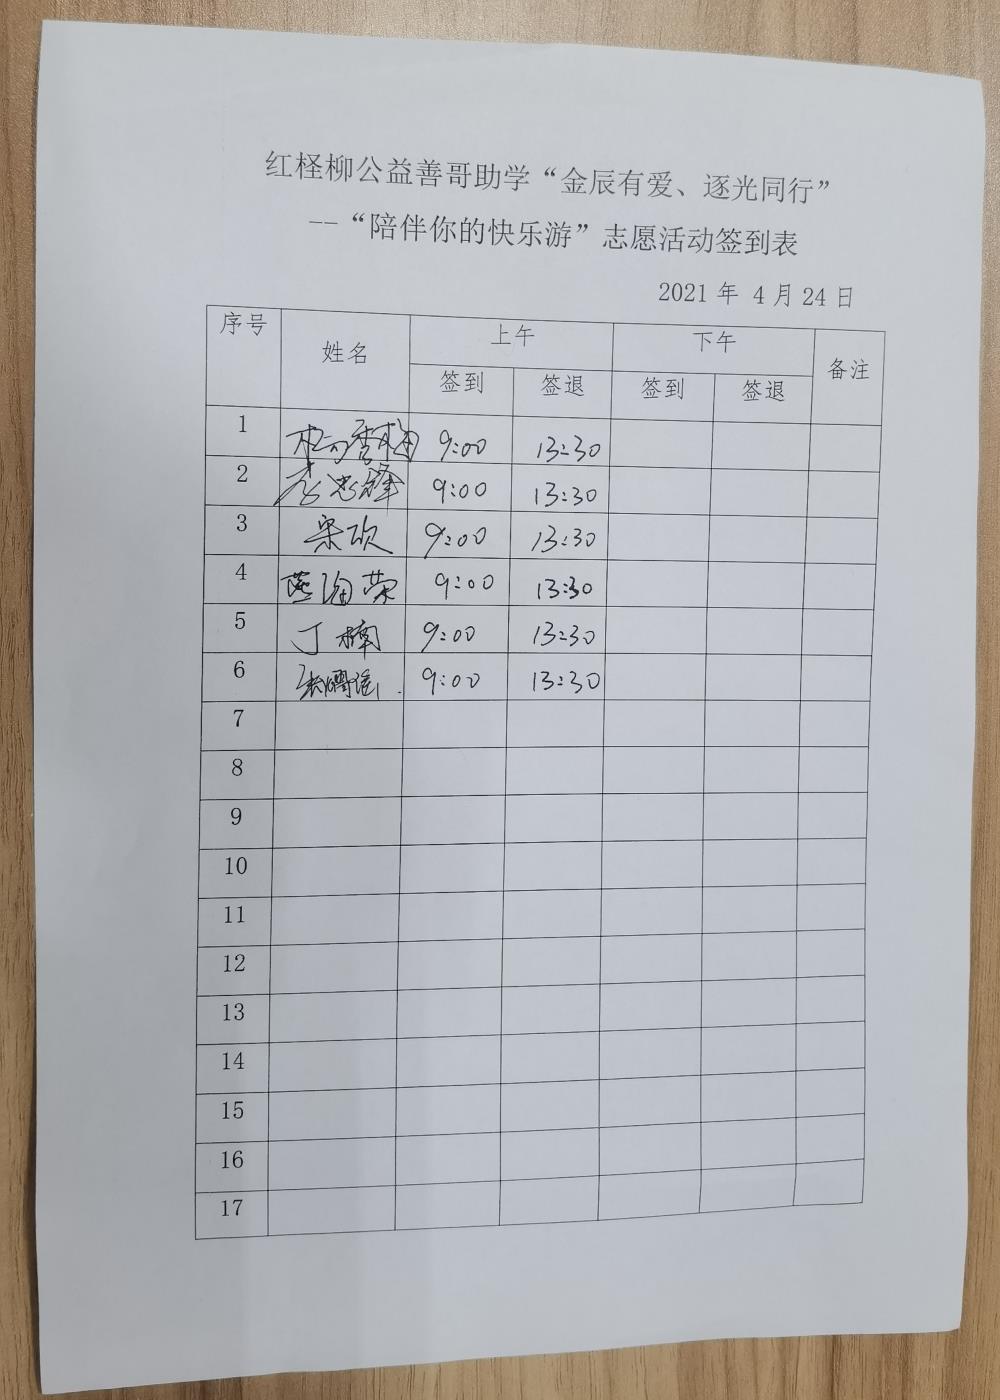 红柽柳公益善哥助学“金辰有爱、逐光同行”
--“陪伴你的快乐游”志愿活动签到表
2021 年 4 月 24 日
序号 姓名 上午 下午 备注
签到 签退 签到 签退
1 9:00 13:30
2 李忠锋 9:00 13:30
3 梁欣 9:00 13:30
4 9:00 13:30
5 丁楠 9:00 13:30
6 9:00 13:30
7
8
9
10
11
12
13
14
15
16
17